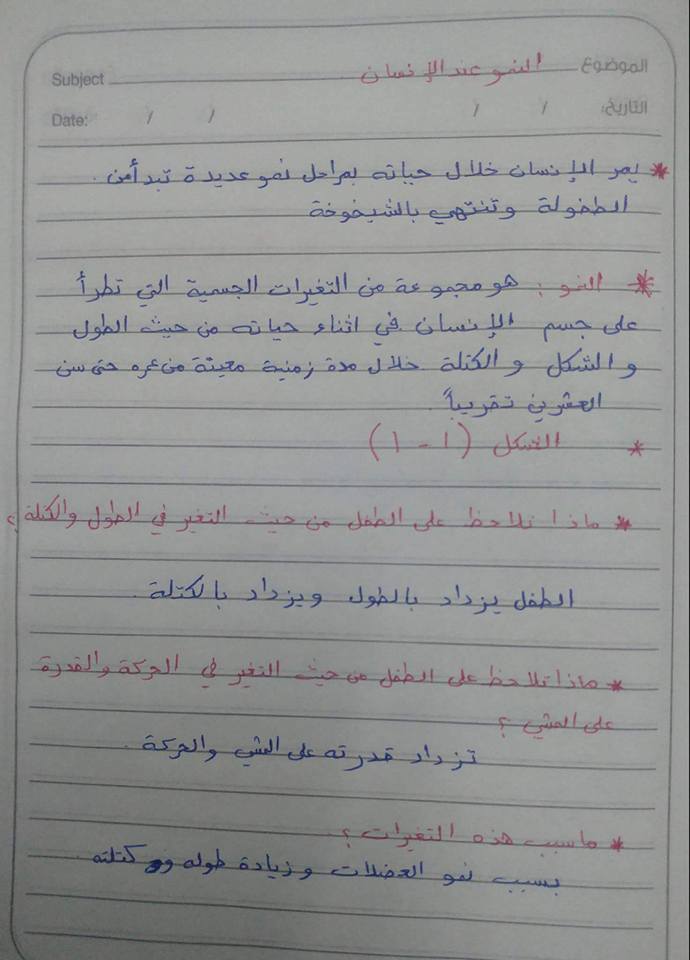 الموضوع النمو عند الإنسان Subject
التاريخ: / / / / Date:
* يمر الإنسان خلال حياته بمراحل نمو عديدة تبدأ من
الطفولة وتنتهي بالشيخوخة
* النمو : هو مجموعة من التغيرات الجسمية التي تطرأ
على جسم الإنسان في اثناء حياته من حيث الطول
و الشكل و الكتلة خلال مدة زمنية معينة من عمره حتى سن
العشرين تقريباً.
* الشكل (١ - ١)
* ماذا نلاحظ على الطفل من حيث التغير في الطول والكتلة ؟
الطفل يزداد بالطول ويزداد بالكتلة.
* ماذا نلاحظ على الطفل من حيث التغير في الحركة والقدرة
على المشي ؟
تزداد قدرته على المشي والحركة.
* ما سبب هذه التغيرات ؟
بسبب نمو العضلات وزيادة طوله و كتلته.